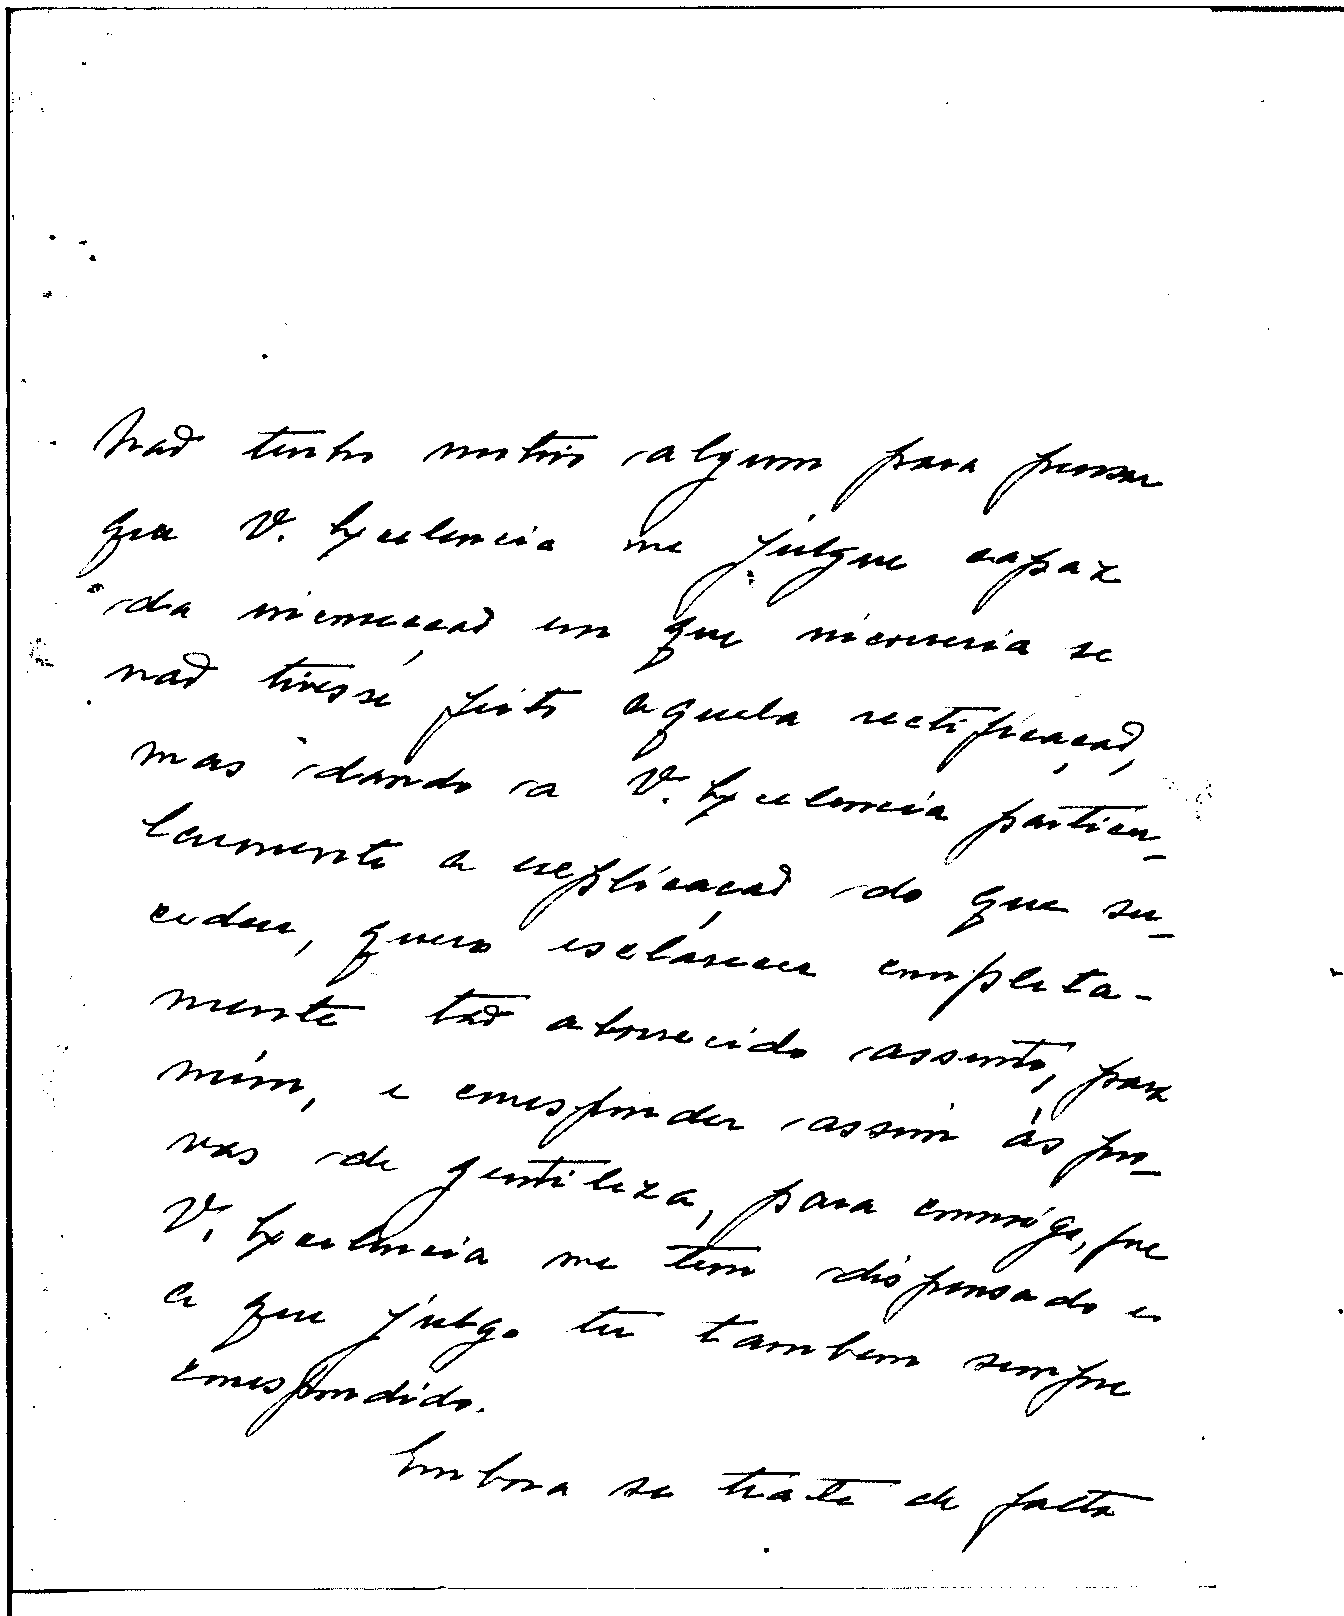 Não tenho motivo algum para pensar
que V. Excelencia me julgue capaz
da incorreçaõ em que incorreria se
naõ tivesse feito aquela rectificaçaõ,
mas dando a V. Excelencia particu-
larmente a explicaçaõ do que su-
cedeu, quero esclarecer completa-
mente taõ aborrecido assunto, para
mim, e corresponder assim ás pro-
vas de gentileza, para commigo, que
V. Excelencia me tem dispensado e
a que julgo ter tambem sempre
correspondido.
Embora se trate de facto